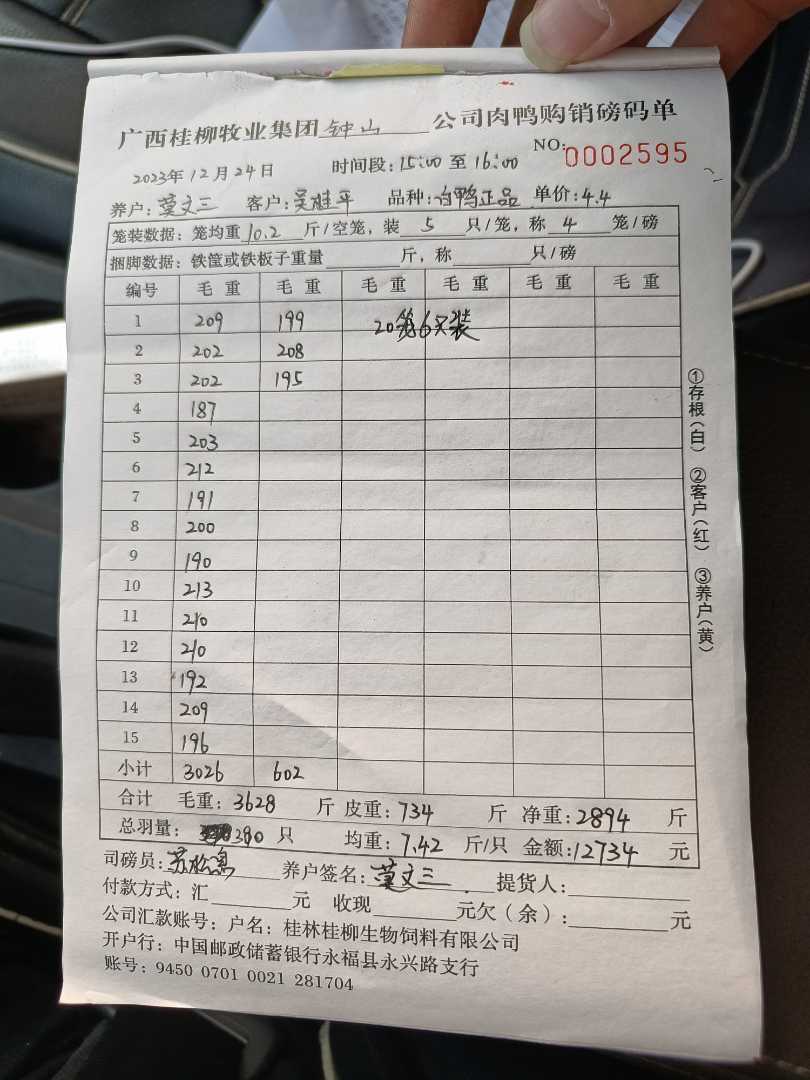 广西桂柳牧业集团钟山公司肉鸭购销磅码单
NO:0002595
2023年12月24日 时间段:15:00至16:00
养户:莫文三 客户:吴桂平 品种:白鸭正品 单价:4.4
笼装数据:笼均重10.2斤/空笼,装5只/笼,称4笼/磅
捆脚数据:铁筐或铁板子重量 斤,称 只/磅
编号 毛重 毛重 毛重 毛重 毛重 毛重
1 209 199 20笼6只装
2 202 208
3 202 195
4 187
5 203
6 212
7 191
8 200
9 190
10 213
11 210
12 210
13 192
14 209
15 196
小计 3026 602
合计 毛重:3628斤 皮重:734斤 净重:2894斤
总羽量:380只 均重:7.42斤/只 金额:12734元
司磅员: 养户签名:莫文三 提货人:
付款方式:汇 元 收现 元欠(余): 元
公司汇款账号:户名:桂林桂柳生物饲料有限公司
开户行:中国邮政储蓄银行永福县永兴路支行
账号:9450 0701 0021 281704
①存根(白) ②客户(红) ③养户(黄)